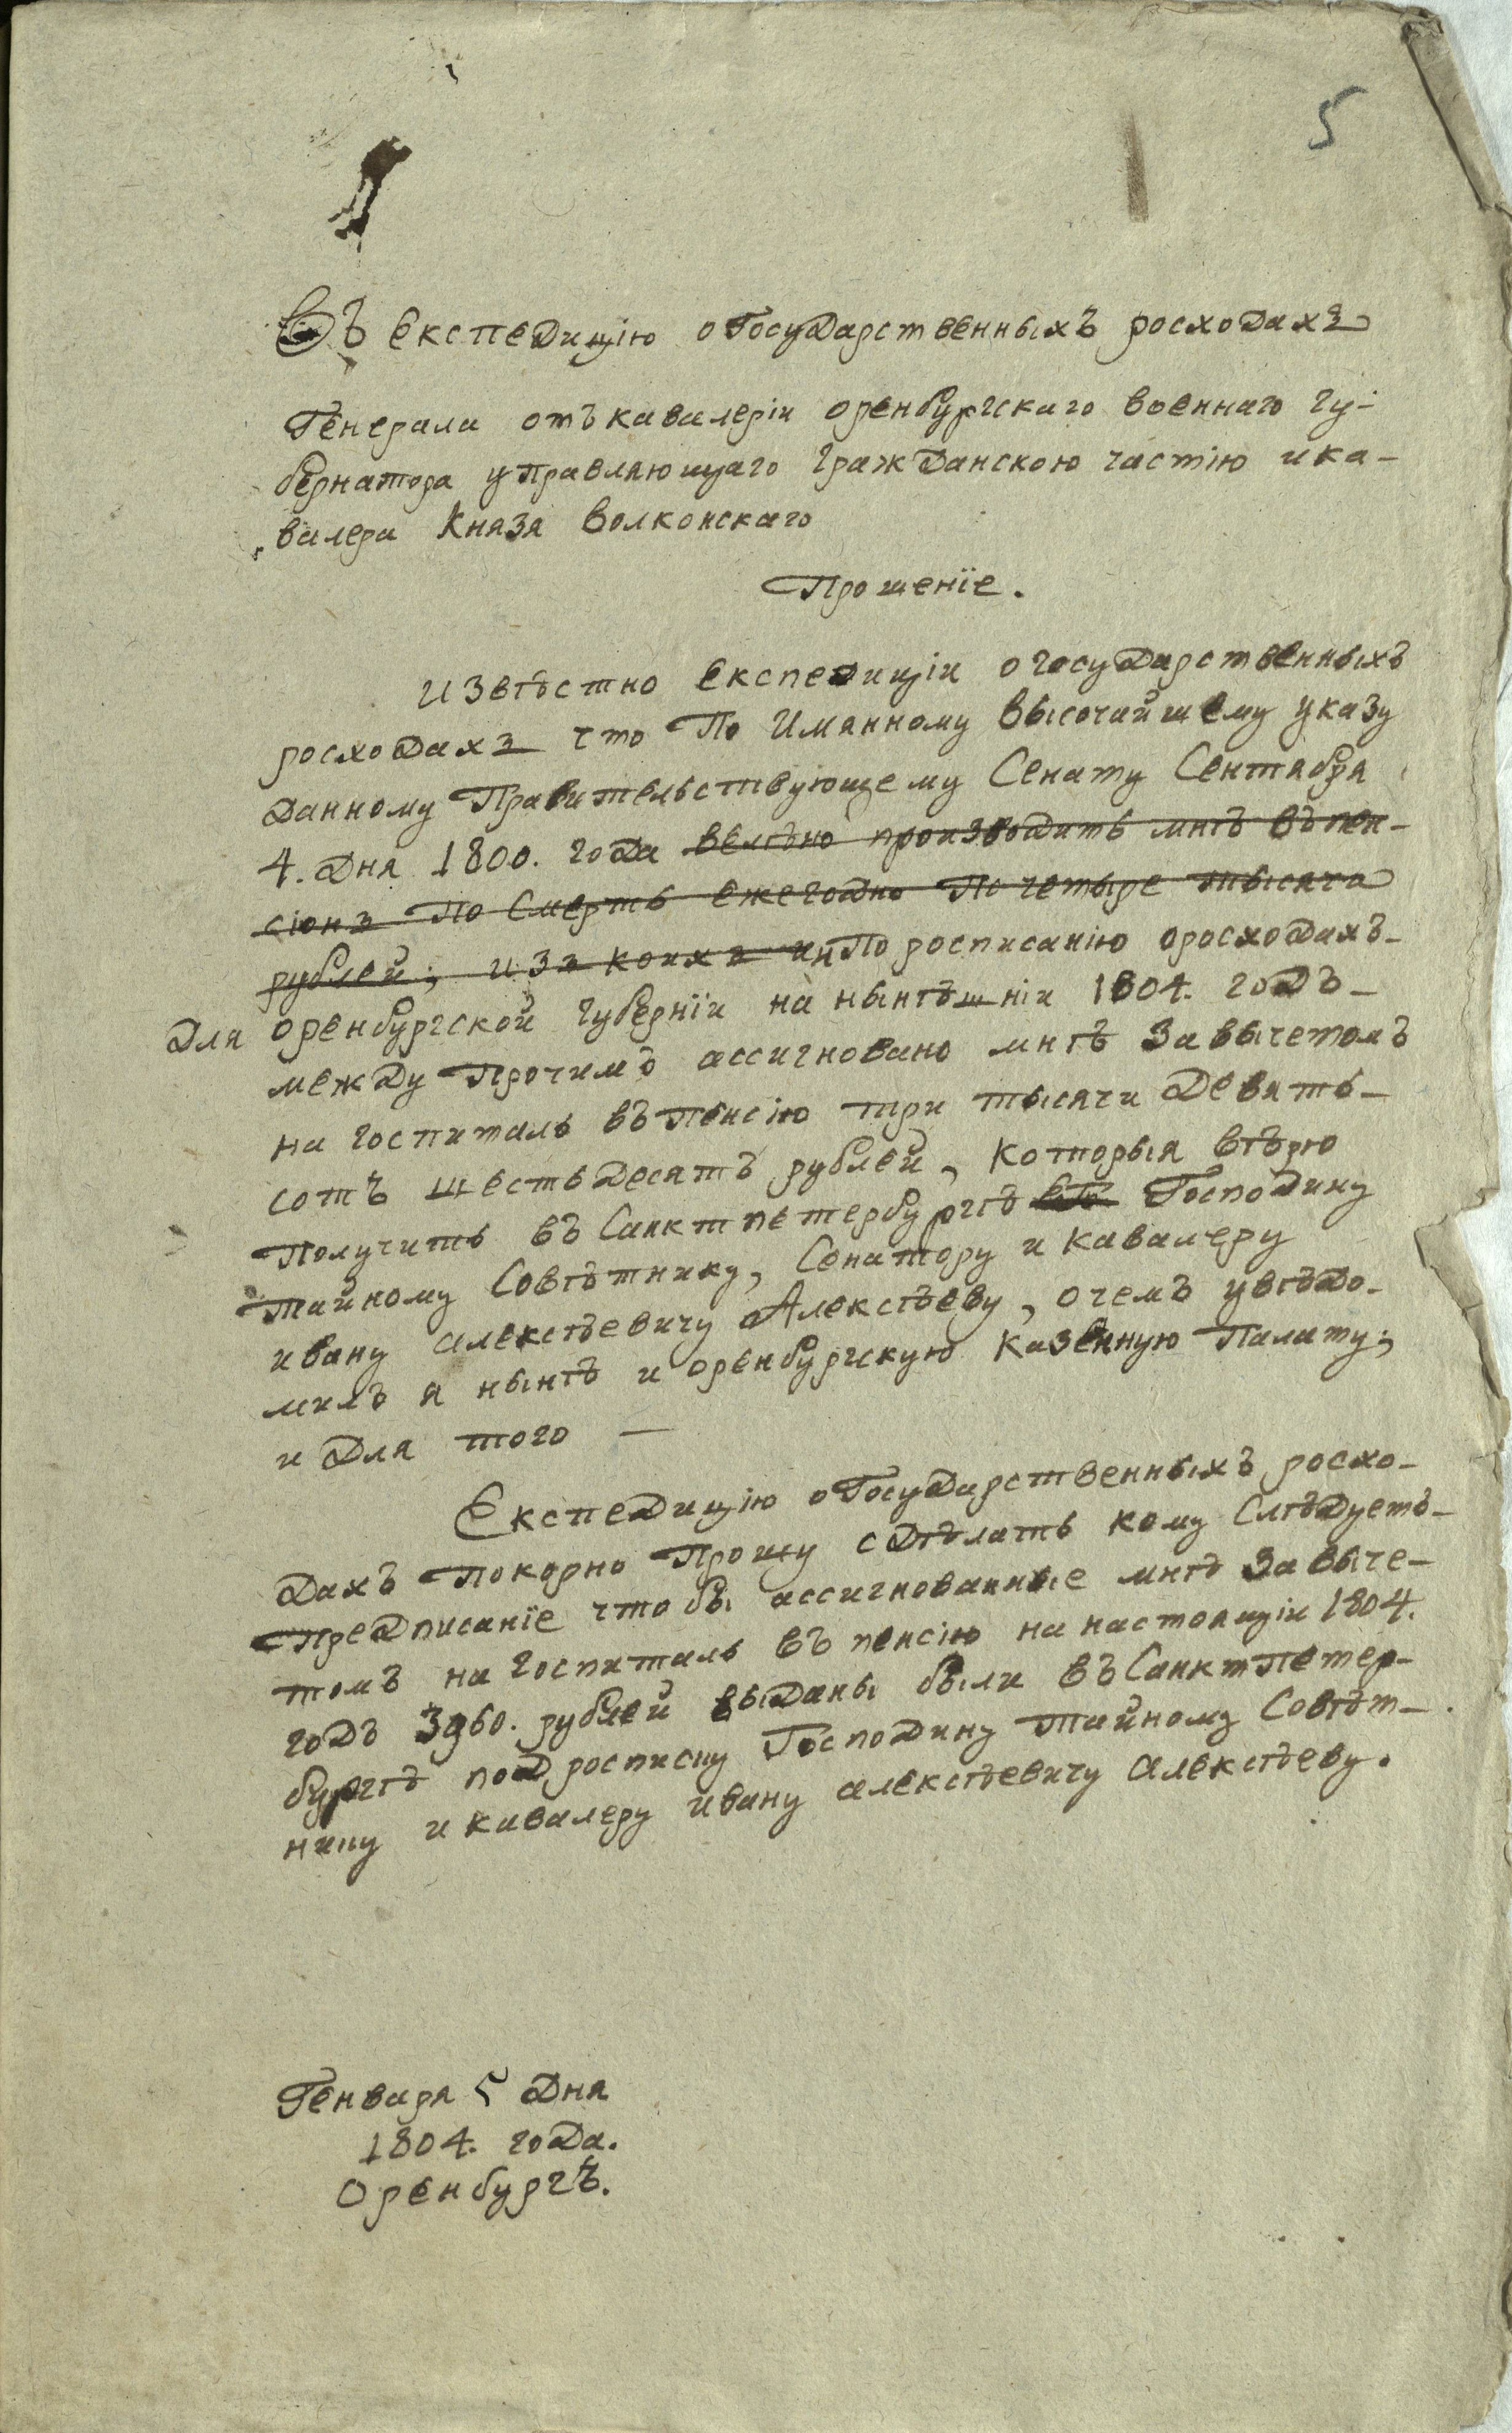 5
Въ експедицію о Государственныхъ росходахъ
Генерала отъ кавалеріи оренбургскаго военнаго гу-
бернатора управляющаго гражданскою частію и ка-
валера Князя Волконскаго
Прошенїе.
Извѣстно експедиціи о государственныхъ
росходахъ что По Имянному высочайшему указу
данному Правительствующему Сенату Сентября
4. дня 1800. года велѣно производить мнѣ въ пен-
сіонъ По Смерть ежегодно По четыре тысячи
рублей; изъ коихъ и По росписанію о росходахъ-
для оренбургской губернїи на нынѣшніи 1804. годъ-
между Прочимъ ассигновано мнѣ За вычетомъ
на госпиталь въ Пенсію три тысячи Девять-
сотъ шестьдесятъ рублей, которыя вѣрю
Получить въ Санктпетербургѣ его Господину
тайному Совѣтнику, Сенатору и кавалеру
ивану алексѣевичу Алексѣеву, о чемъ увѣдо-
милъ я нынѣ и оренбургскую казенную Палату;
и для того —
Експедицію о Государственныхъ росхо-
дахъ Покорно Прошу сдѣлать кому Слѣдуетъ-
Предписанїе что бы ассигнованные мнѣ За выче-
томъ на госпиталь въ пенсію на настоящіи 1804.
годъ 3960. рублей выданы были въ СанктПетер-
бургѣ подросписку Господину тайному Совѣт-
нику и кавалеру ивану алексѣевичу алексѣеву.
Генваря 5 Дня
1804. года.
Оренбургъ.